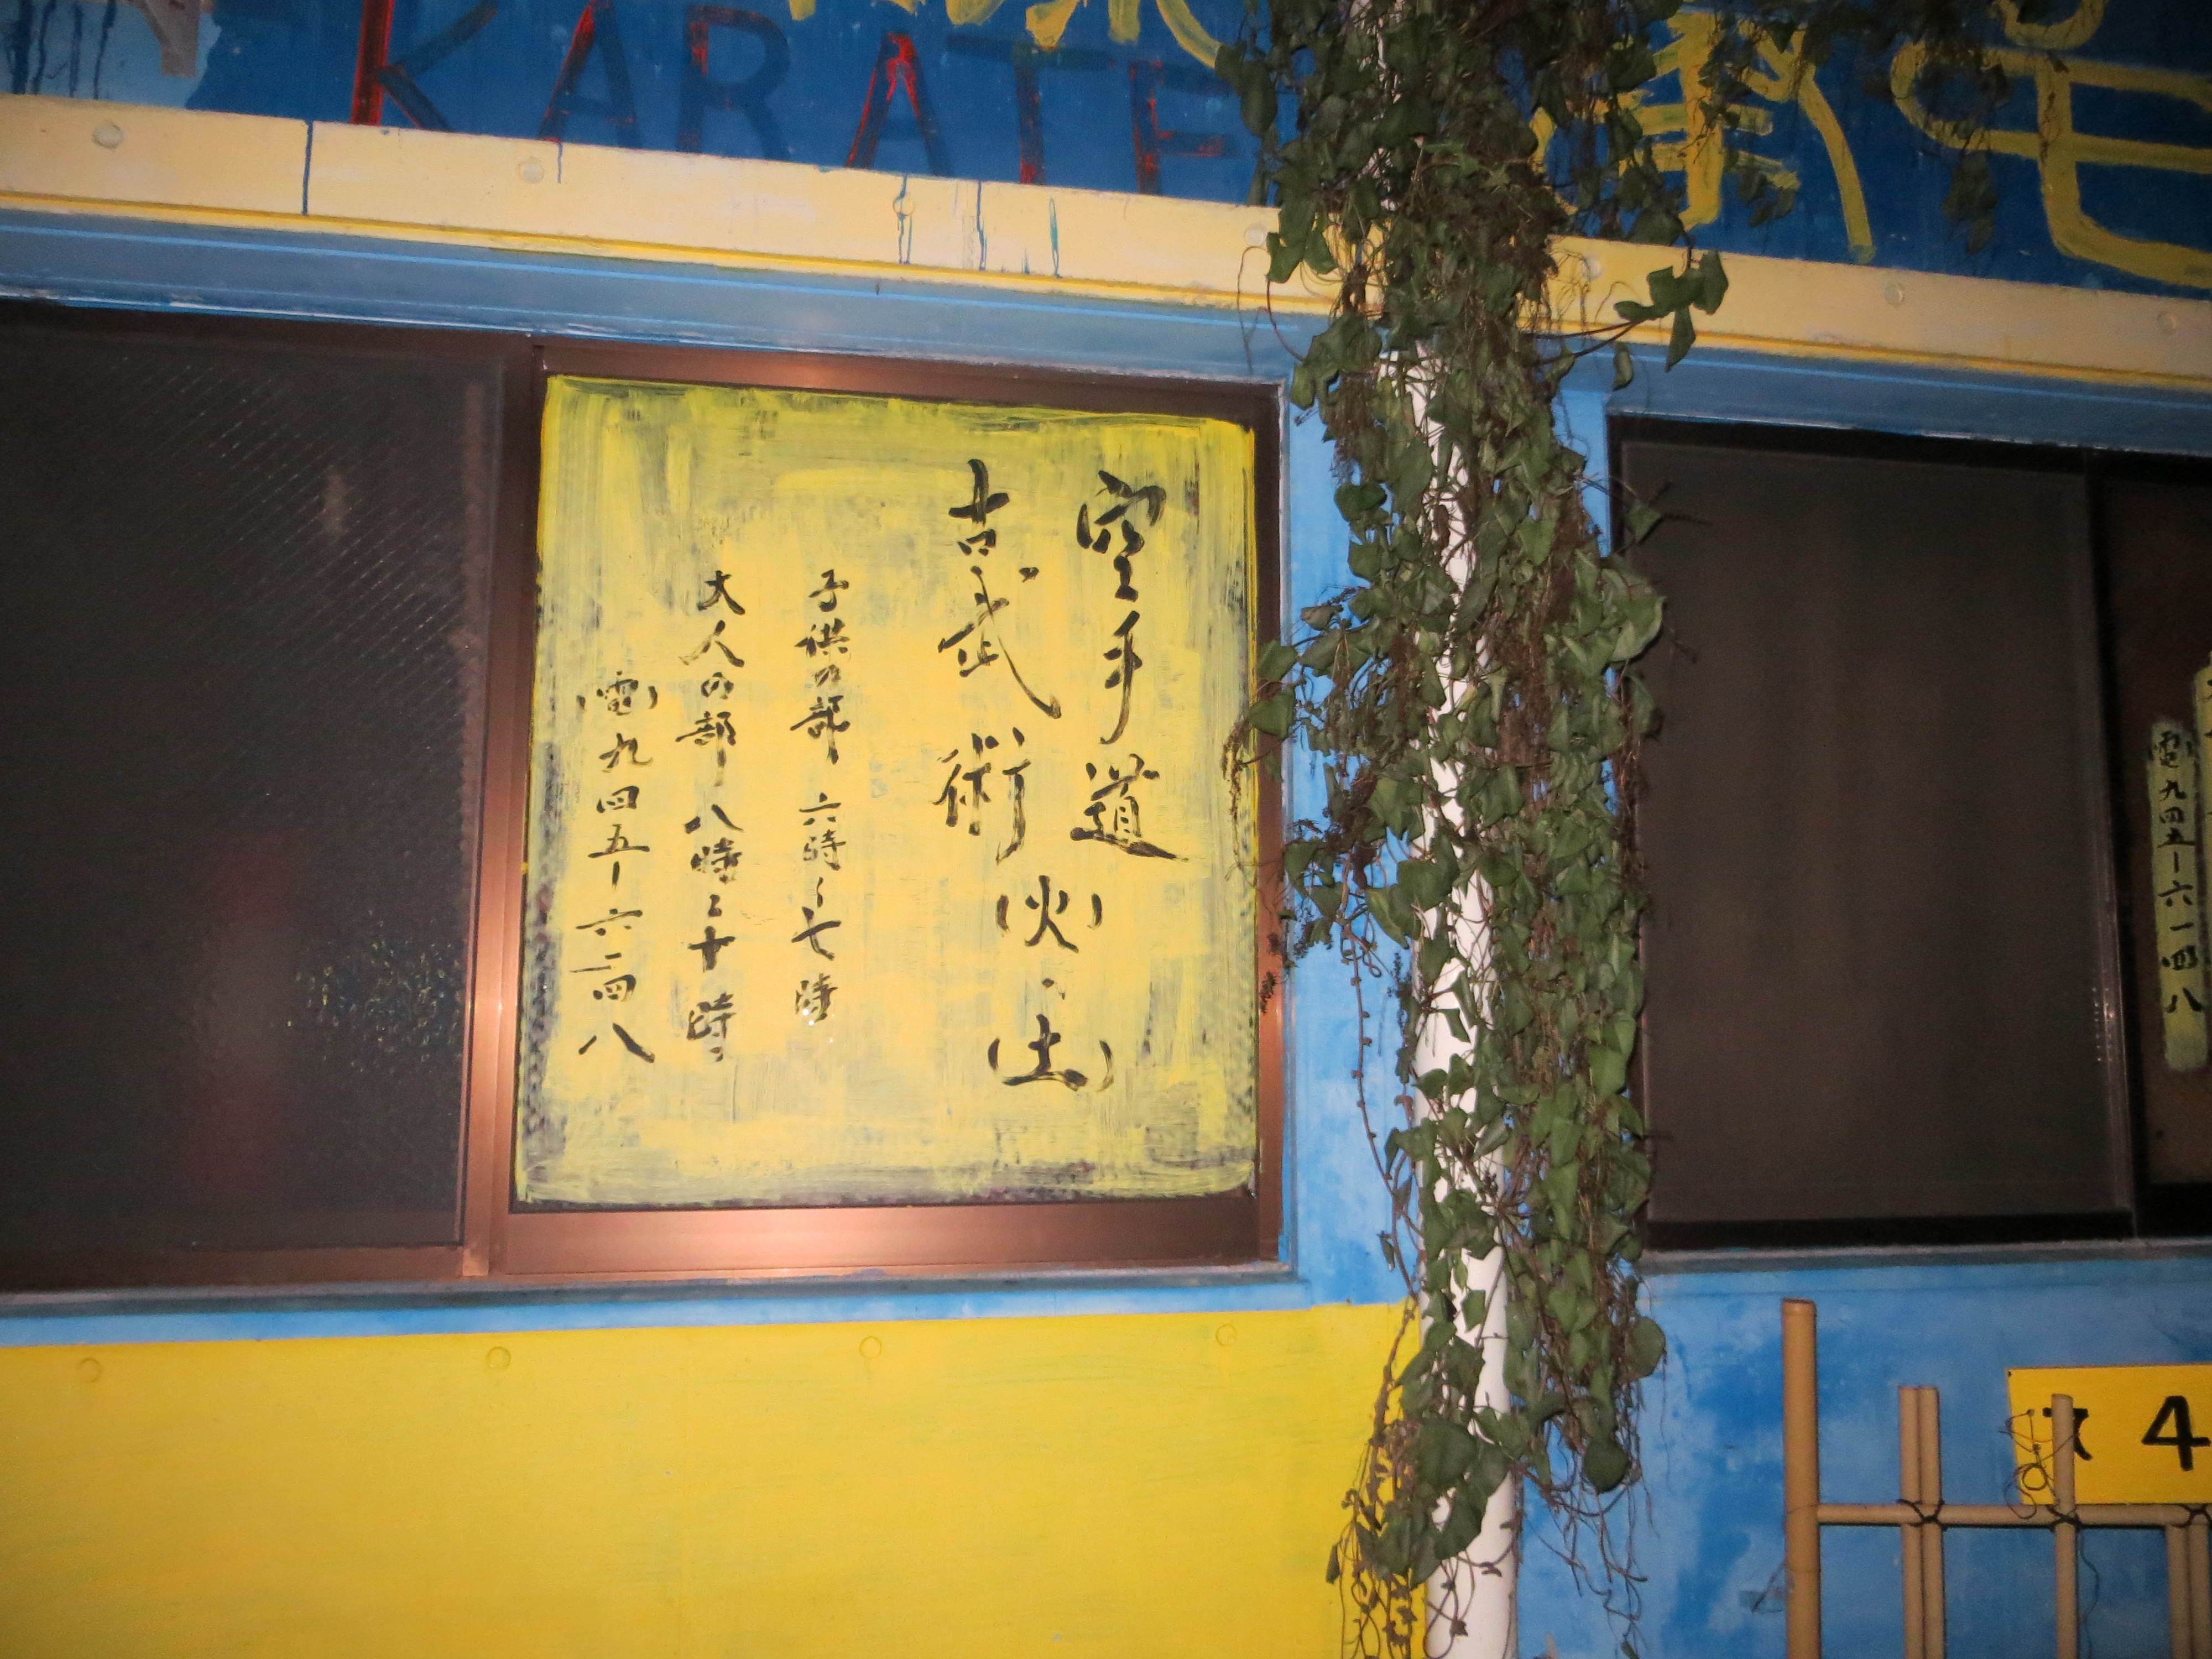 KARATE
空手道
古武術
(火)・(土)
子供の部 六時〜七時
大人の部 八時〜十時
(電)九四五ー六一四八
(電)九四五ー六一四八
4